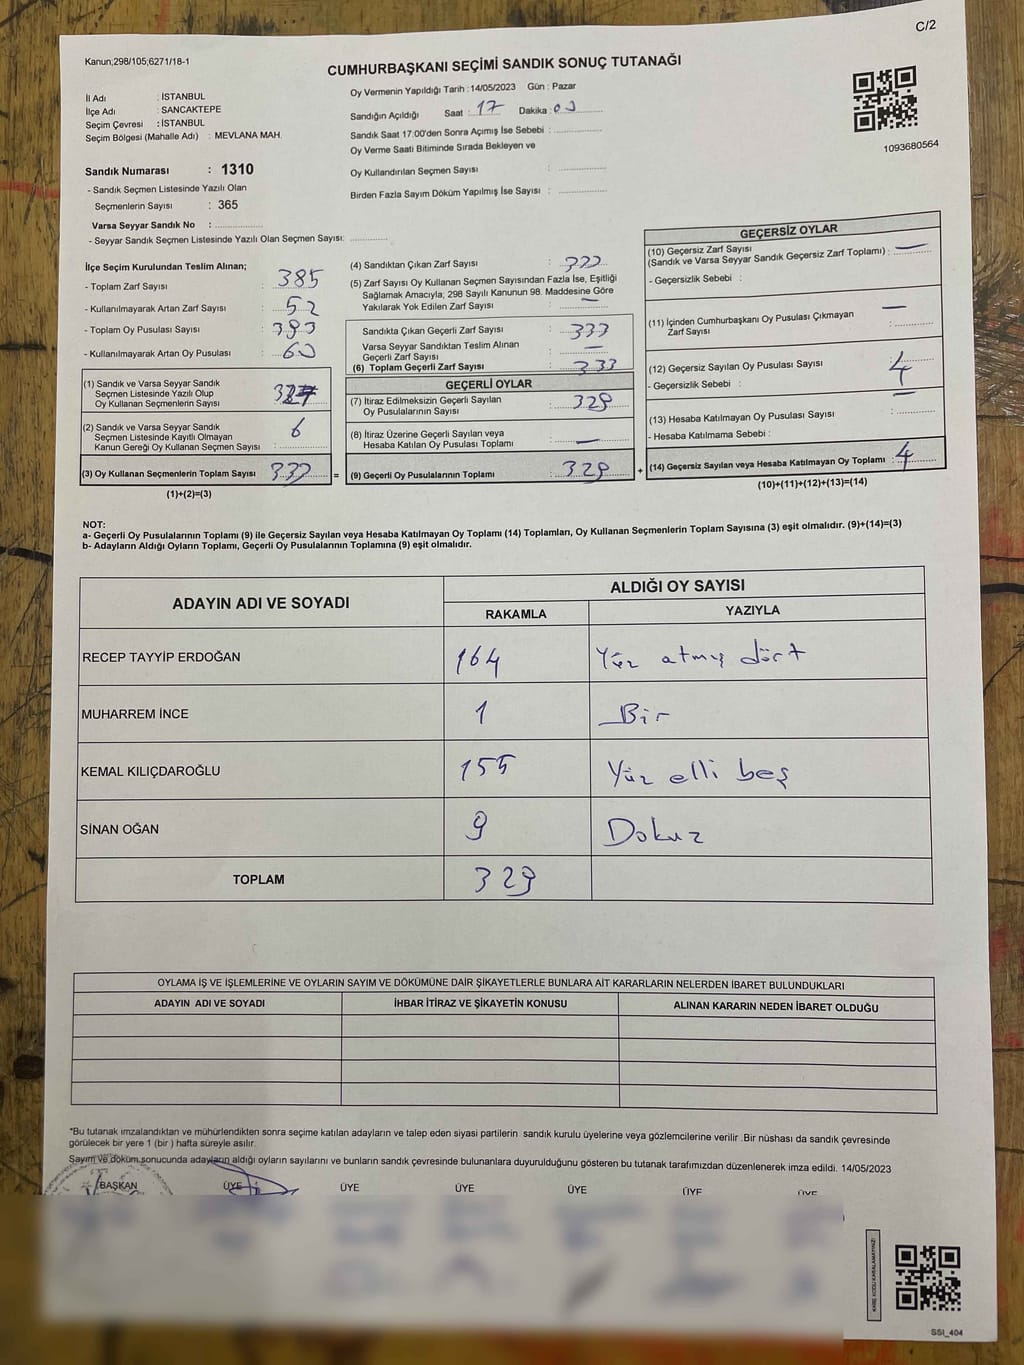 C/2
Kanun;298/105;6271/18-1
CUMHURBAŞKANI SEÇİMİ SANDIK SONUÇ TUTANAĞI
İl Adı : İSTANBUL
İlçe Adı : SANCAKTEPE
Seçim Çevresi : İSTANBUL
Seçim Bölgesi (Mahalle Adı) : MEVLANA MAH.
Sandık Numarası : 1310
- Sandık Seçmen Listesinde Yazılı Olan
Seçmenlerin Sayısı : 365
Varsa Seyyar Sandık No :
- Seyyar Sandık Seçmen Listesinde Yazılı Olan Seçmen Sayısı:
Oy Vermenin Yapıldığı Tarih : 14/05/2023 Gün : Pazar
Sandığın Açıldığı Saat : 17 Dakika :
Sandık Saat 17:00'den Sonra Açımış İse Sebebi :
Oy Verme Saati Bitiminde Sırada Bekleyen ve
Oy Kullandırılan Seçmen Sayısı :
Birden Fazla Sayım Döküm Yapılmış İse Sayısı :
1093680564
İlçe Seçim Kurulundan Teslim Alınan;
- Toplam Zarf Sayısı : 385
- Kullanılmayarak Artan Zarf Sayısı : 52
- Toplam Oy Pusulası Sayısı : 393
- Kullanılmayarak Artan Oy Pusulası : 60
(1) Sandık ve Varsa Seyyar Sandık
Seçmen Listesinde Yazılı Olup
Oy Kullanan Seçmenlerin Sayısı : 327
(2) Sandık ve Varsa Seyyar Sandık
Seçmen Listesinde Kayıtlı Olmayan
Kanun Gereği Oy Kullanan Seçmen Sayısı : 6
(3) Oy Kullanan Seçmenlerin Toplam Sayısı : 333 =
(1)+(2)=(3)
(4) Sandıktan Çıkan Zarf Sayısı : 333
(5) Zarf Sayısı Oy Kullanan Seçmen Sayısından Fazla İse, Eşitliği
Sağlamak Amacıyla; 298 Sayılı Kanunun 98. Maddesine Göre
Yakılarak Yok Edilen Zarf Sayısı : —
Sandıkta Çıkan Geçerli Zarf Sayısı : 333
Varsa Seyyar Sandıktan Teslim Alınan
Geçerli Zarf Sayısı : —
(6) Toplam Geçerli Zarf Sayısı : 333
GEÇERLİ OYLAR
(7) İtiraz Edilmeksizin Geçerli Sayılan
Oy Pusulalarının Sayısı : 329
(8) İtiraz Üzerine Geçerli Sayılan veya
Hesaba Katılan Oy Pusulası Toplamı : —
(9) Geçerli Oy Pusulalarının Toplamı : 329 +
GEÇERSİZ OYLAR
(10) Geçersiz Zarf Sayısı
(Sandık ve Varsa Seyyar Sandık Geçersiz Zarf Toplamı) : —
- Geçersizlik Sebebi :
(11) İçinden Cumhurbaşkanı Oy Pusulası Çıkmayan
Zarf Sayısı : —
(12) Geçersiz Sayılan Oy Pusulası Sayısı : 4
- Geçersizlik Sebebi :
(13) Hesaba Katılmayan Oy Pusulası Sayısı : —
- Hesaba Katılmama Sebebi :
(14) Geçersiz Sayılan veya Hesaba Katılmayan Oy Toplamı : 4
(10)+(11)+(12)+(13)=(14)
NOT:
a- Geçerli Oy Pusulalarının Toplamı (9) ile Geçersiz Sayılan veya Hesaba Katılmayan Oy Toplamı (14) Toplamları, Oy Kullanan Seçmenlerin Toplam Sayısına (3) eşit olmalıdır. (9)+(14)=(3)
b- Adayların Aldığı Oyların Toplamı, Geçerli Oy Pusulalarının Toplamına (9) eşit olmalıdır.
ADAYIN ADI VE SOYADI ALDIĞI OY SAYISI
RAKAMLA YAZIYLA
RECEP TAYYİP ERDOĞAN 164 Yüz atmış dört
MUHARREM İNCE 1 Bir
KEMAL KILIÇDAROĞLU 155 Yüz elli beş
SİNAN OĞAN 9 Dokuz
TOPLAM 329
OYLAMA İŞ VE İŞLEMLERİNE VE OYLARIN SAYIM VE DÖKÜMÜNE DAİR ŞİKAYETLERLE BUNLARA AİT KARARLARIN NELERDEN İBARET BULUNDUKLARI
ADAYIN ADI VE SOYADI İHBAR İTİRAZ VE ŞİKAYETİN KONUSU ALINAN KARARIN NEDEN İBARET OLDUĞU
*Bu tutanak imzalandıktan ve mühürlendikten sonra seçime katılan adayların ve talep eden siyasi partilerin sandık kurulu üyelerine veya gözlemcilerine verilir .Bir nüshası da sandık çevresinde
görülecek bir yere 1 (bir ) hafta süreyle asılır.
Sayım ve döküm sonucunda adayların aldığı oyların sayılarını ve bunların sandık çevresinde bulunanlara duyurulduğunu gösteren bu tutanak tarafımızdan düzenlenerek imza edildi. 14/05/2023
BAŞKAN ÜYE ÜYE ÜYE ÜYE ÜYE ÜYE
KARE KODU KARALAMAYINIZ!
SSI_404